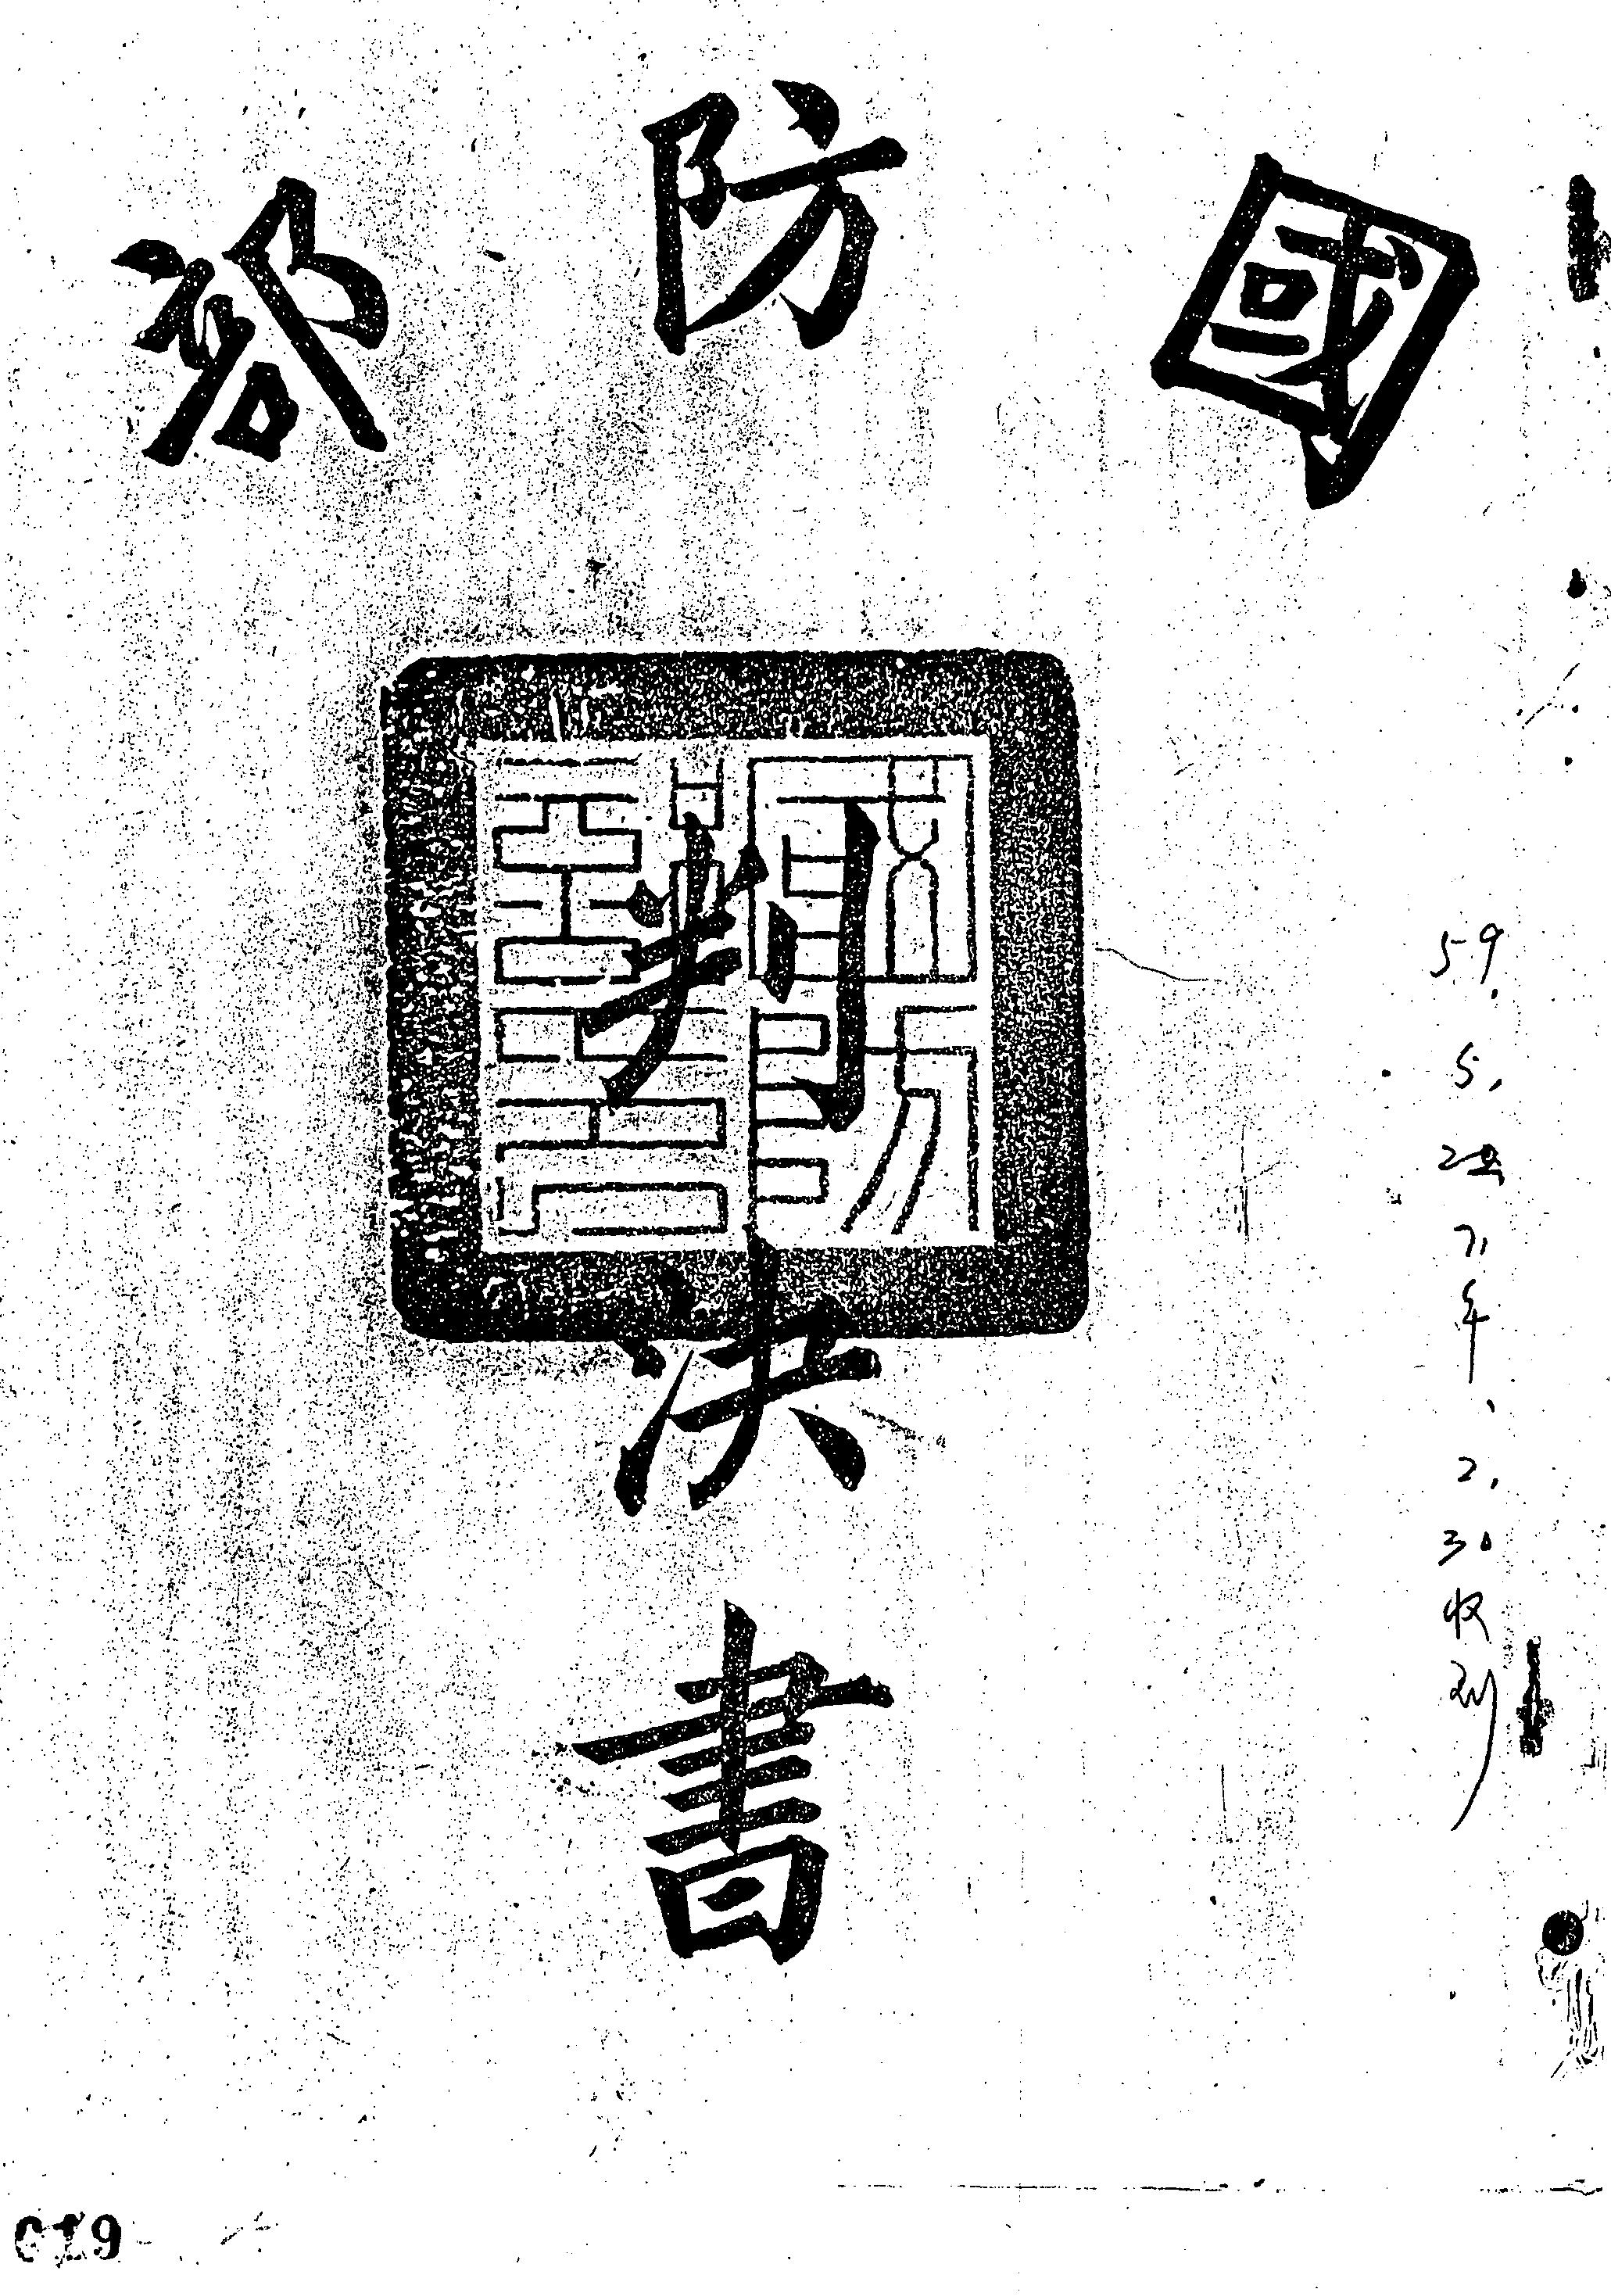 國防部
判決書
國防
部印
59. 5. 下午 2, 30 收到
019